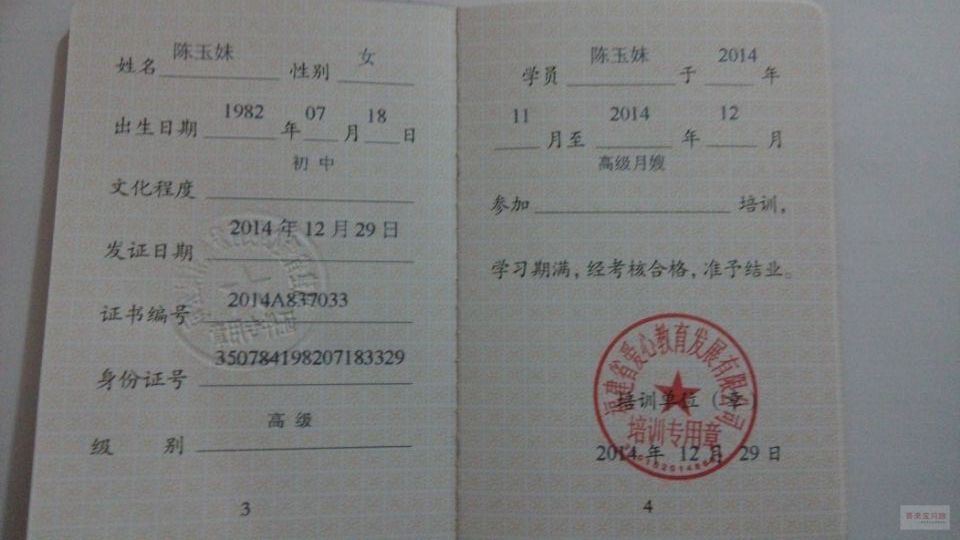 姓名 陈玉妹 性别 女
出生日期 1982 年 07 月 18 日
文化程度 初中
发证日期 2014年12月29日
证书编号 2014A837033
身份证号 350784198207183329
级 别 高级
3
学员 陈玉妹 于 2014 年
11 月至 2014 年 12 月
参加 高级月嫂 培训，
学习期满，经考核合格，准予结业。
福建省爱心教育发展有限公司
培训单位（章
培训专用章
2014年 12月 29日
4